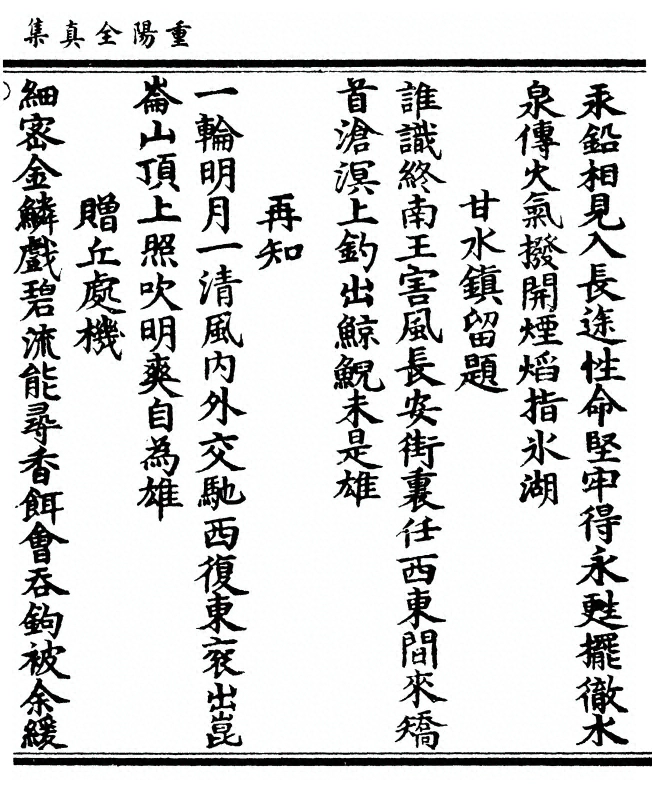 重陽全真集
汞鉛相見入長途性命堅牢得永甦擺徹水
泉傳火氣撥開煙焰指氷湖
甘水鎮留題
誰識終南王害風長安街裏任西東間來矯
首滄溟上釣出鯨鯢未是雄
再知
一輪明月一清風內外交馳西復東衮出崑
崙山頂上照吹明爽自為雄
贈丘處機
細密金鱗戲碧流能尋香餌會吞鉤被余緩